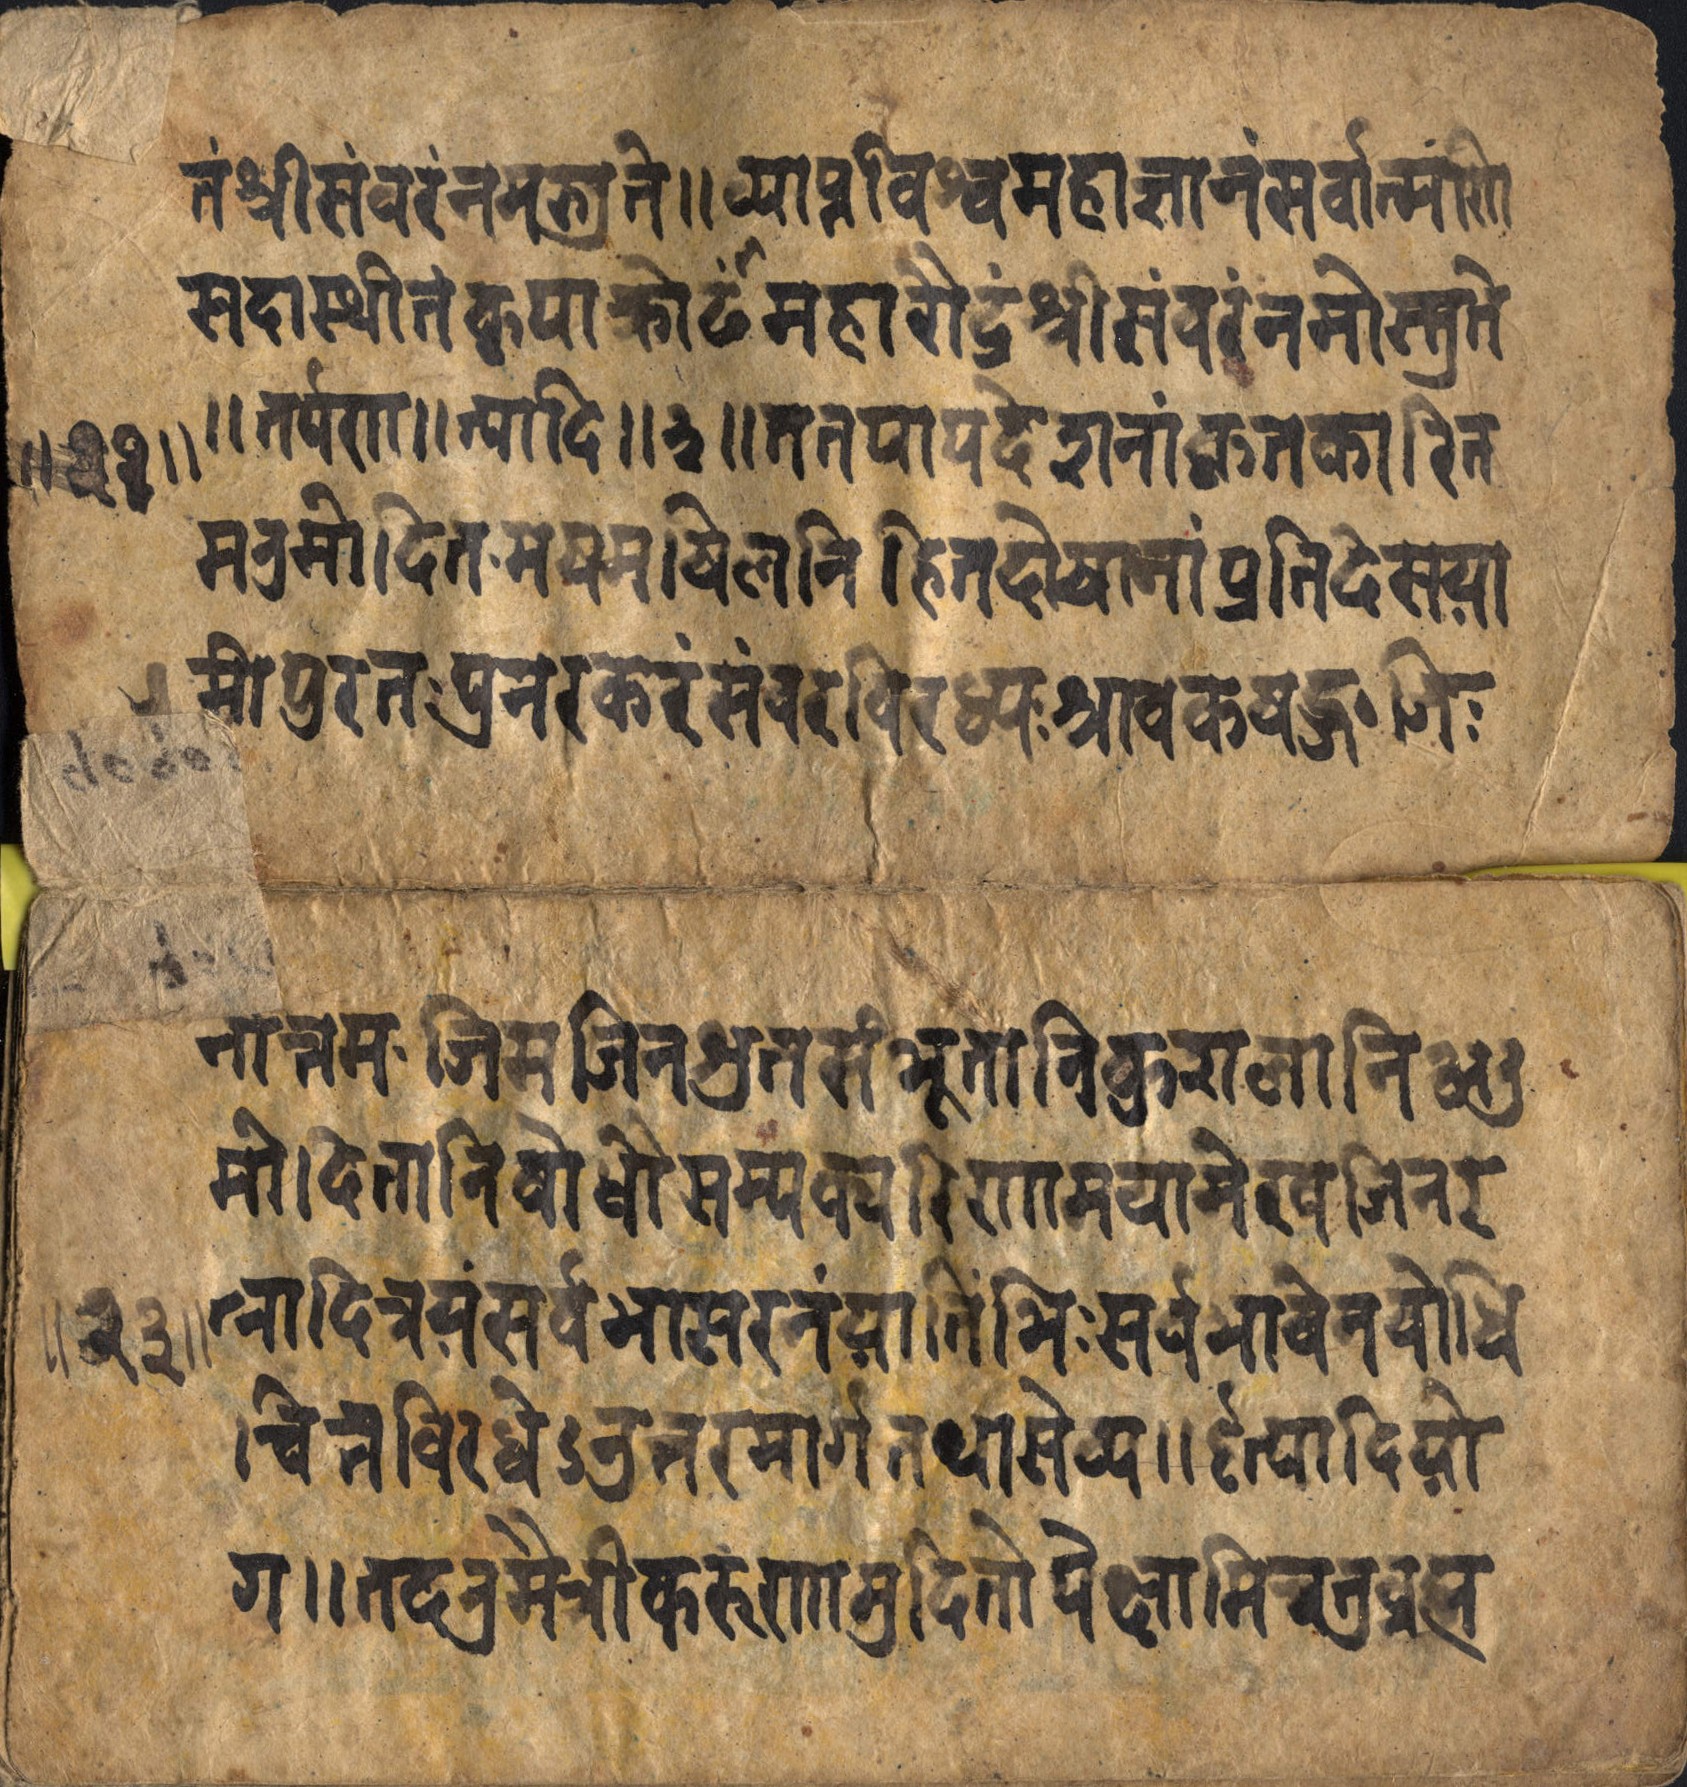 तं श्रीसंवरं नमस्तुते ॥ व्याप्तविश्वमहाज्ञानंसर्वात्मंणि
सदास्थीतं कृपाक्रोढंमहारौद्रंश्रीसंवरंनमोस्तुते
॥ तर्पणा ॥ त्यादि ॥ ३ ॥ ततपापदेशनां कृतकारित
॥ २२ ॥
मनुमोदित मघमषिलनिहितदोषानां प्रतिदेसया
मीपुरतः पुनरकरंसंवरविरध्यः श्रावकषड्ग जिः
नोत्तम जिमजिनश्रुतसंभूतानिकुशलानि
मोदितानि बोधौसम्यक्परिणामयामेस्वजिनर
त्नादित्रयंसर्वभासरनंयातिंभिः सर्वभावेनबोधि
॥ २३ ॥
चित्तविरधेऽनुत्तरमार्गतथासेव्य ॥ इत्यादियो
ग ॥ तदनुमैत्रीकरुणामुदितोपेक्षामिचतुब्रह्म